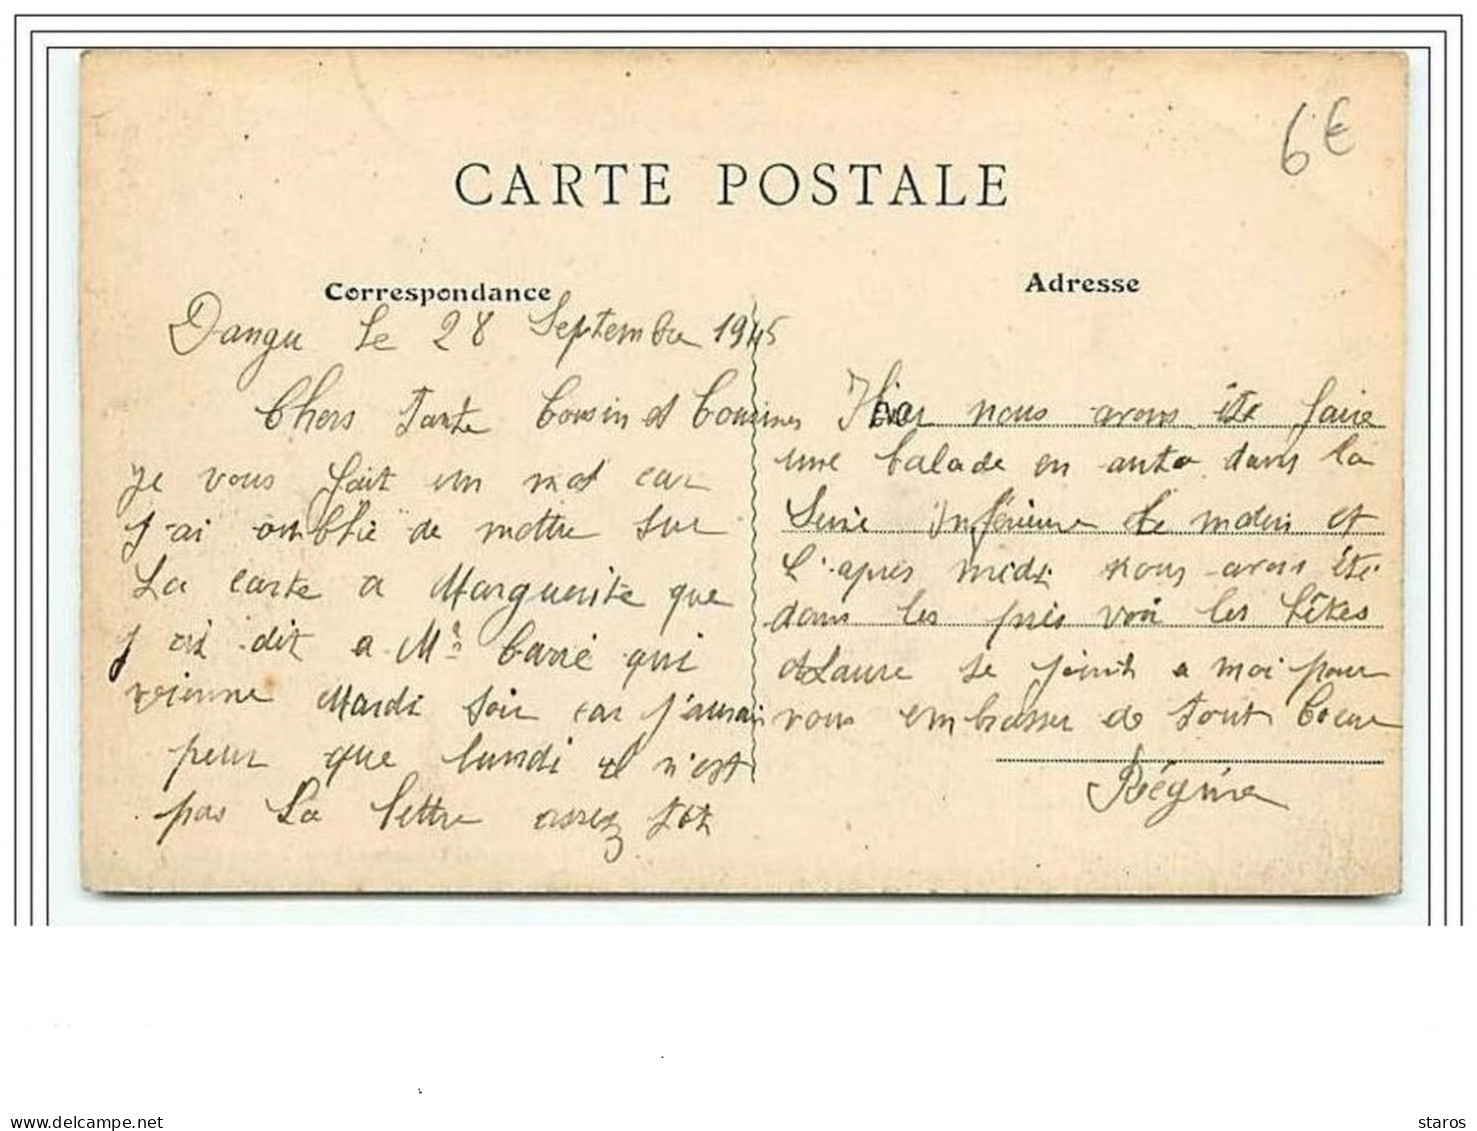 6€
CARTE POSTALE
Correspondance
Adresse
Dangu le 28 Septembre 1945
Chers Tante Cousin et Cousines
je vous fait un mot car
j'ai oublié de mettre sur
la carte a Marguerite que
j'ai dit a Mr Carré qui
vienne Mardi soir car j'aurais
peur que lundi il n'est
pas la lettre assez tot
Hier nous avons été faire
une balade en auto dans la
Seine Inférieure le matin et
l'apres midi nous avons été
dans les prés voir les bêtes
Laure se joint a moi pour
vous embrasser de tout coeur
Régine
staros | delcampe.net